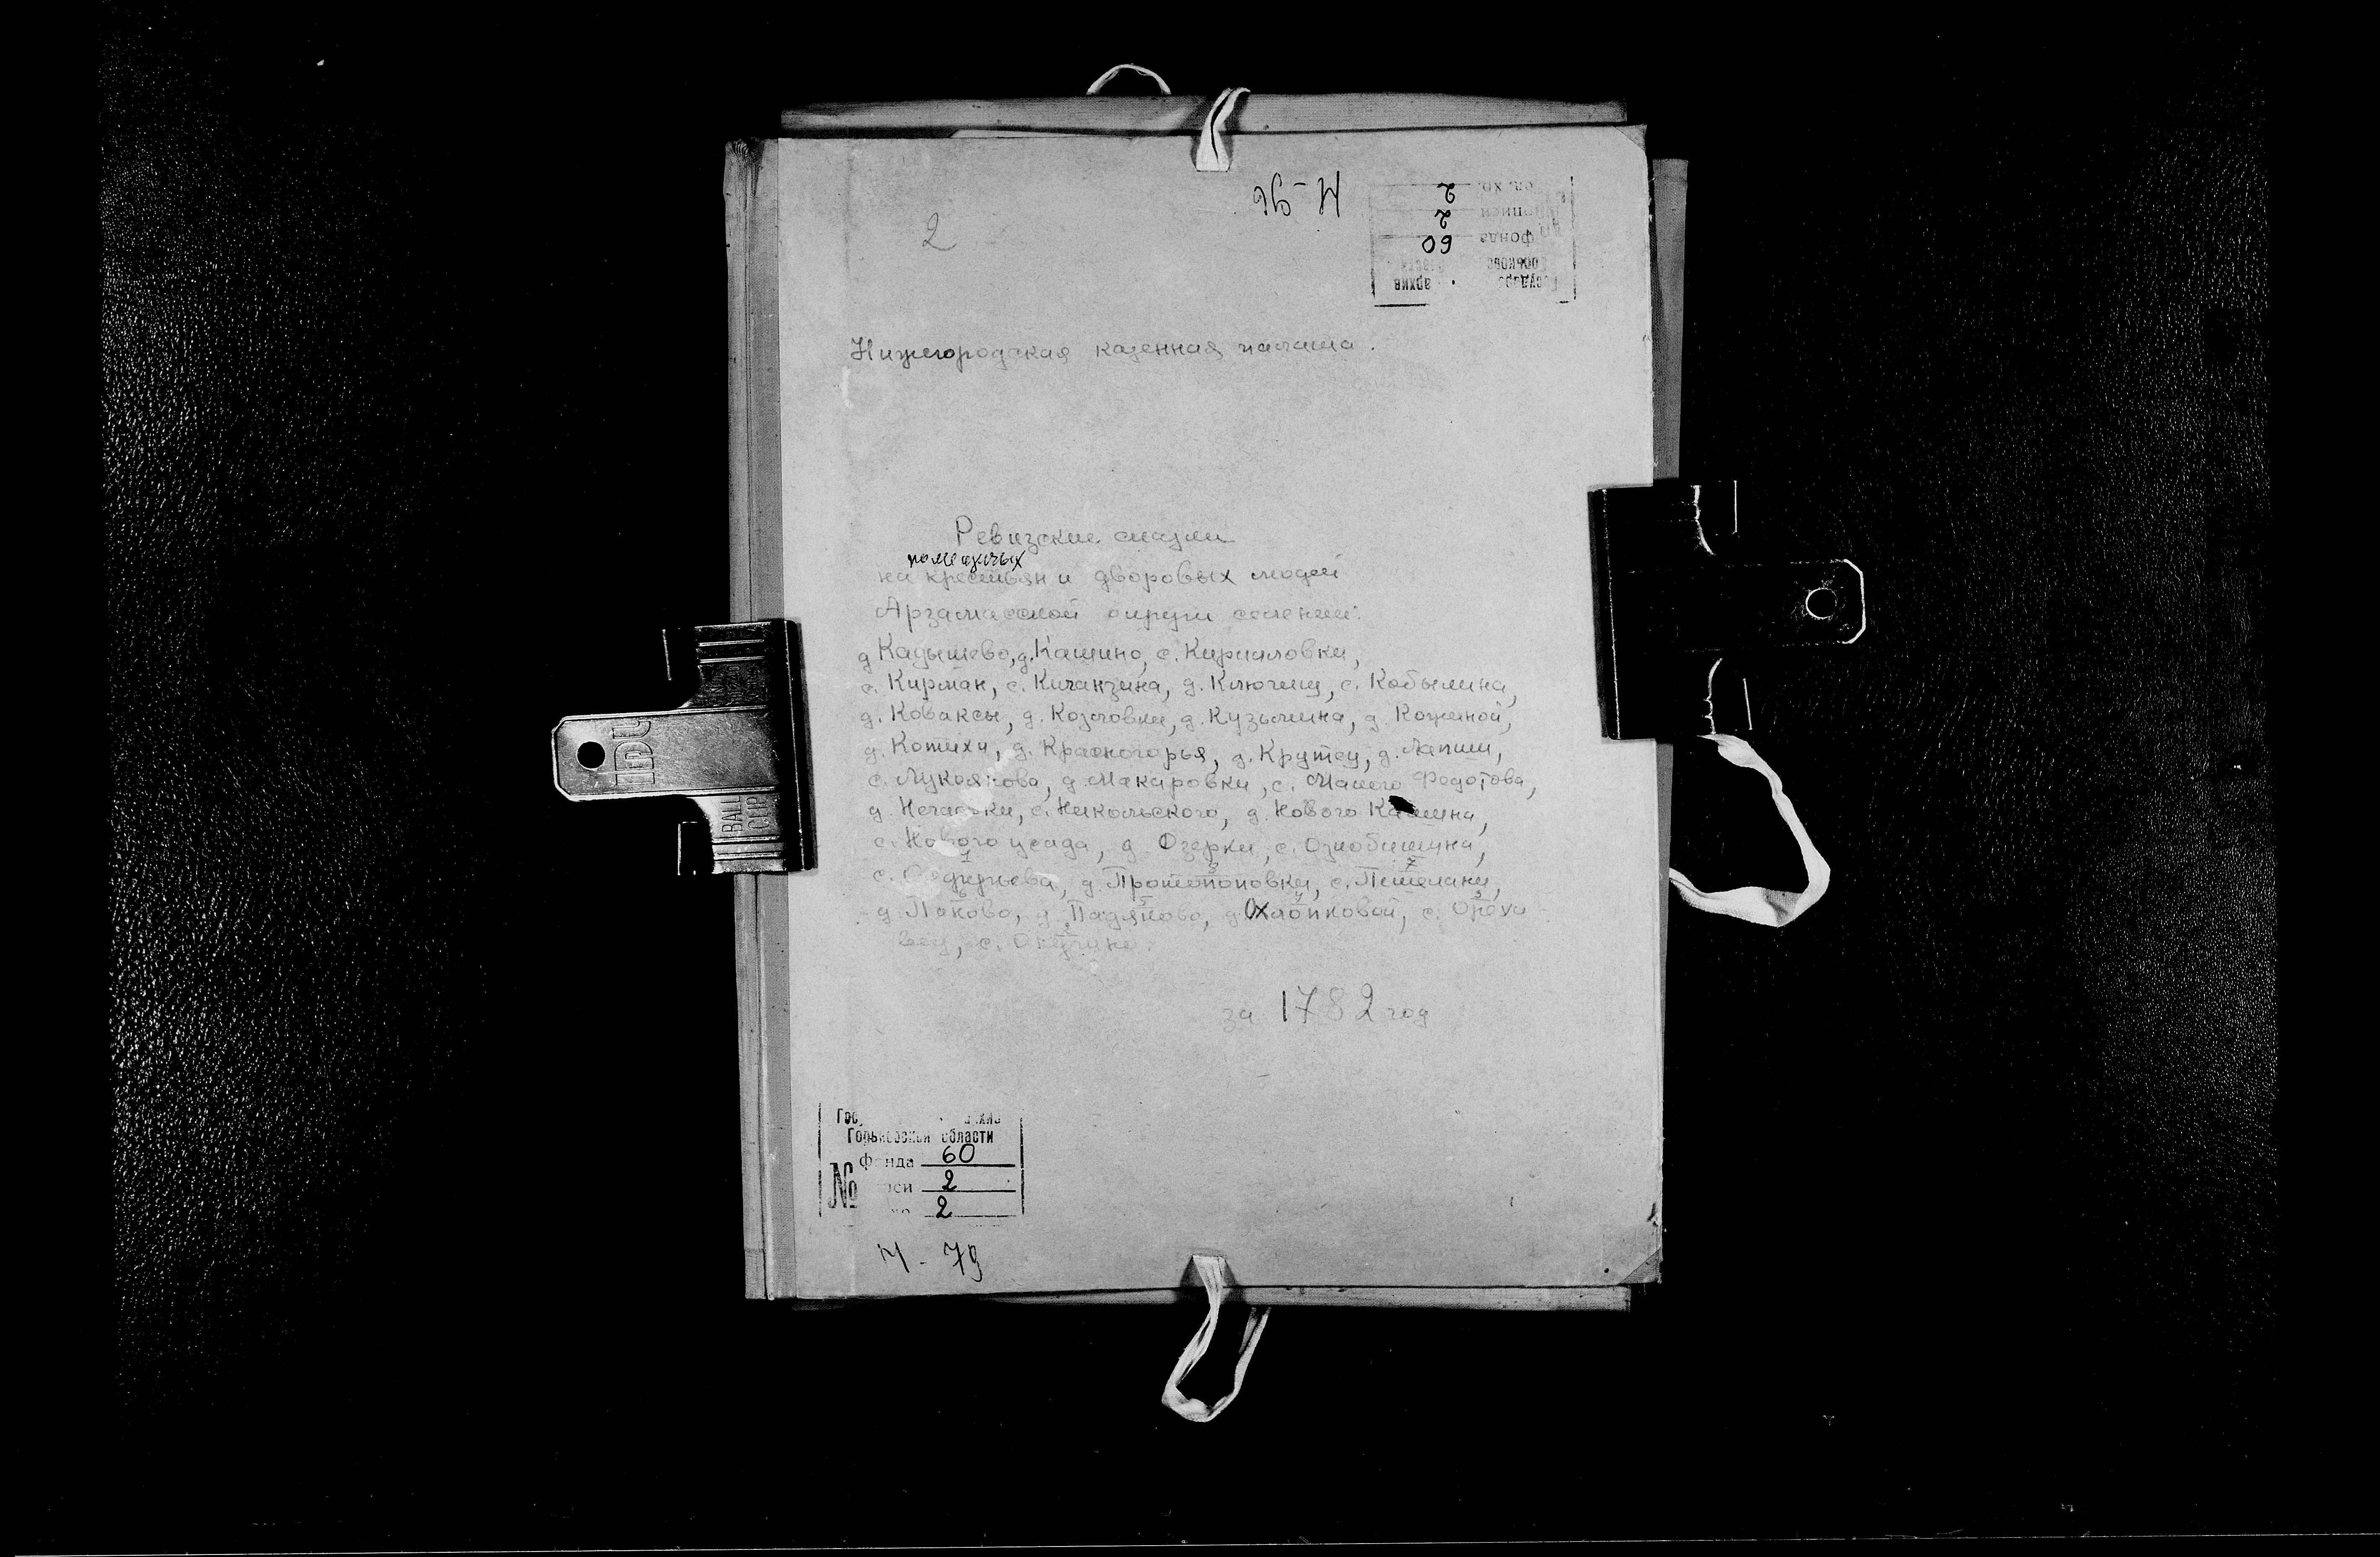 2
И-96
ед. хр. 2
описи 2
фонда 60
архив
Нижегородская казенная палата.
Ревизские сказки
помещичьих
на крестьян и дворовых людей
Арзамасской округи селений:
д Кадышево, д. Кашино, с. Кирилловки,
с. Кирман, с. Кичанзина, д. Ключищ, с. Кобылина,
д. Коваксы, д. Козловки, д. Кузьмина, д. Кожиной,
д. Котихи, д. Красногорья, д. Крутец, д. Лапши,
с. Лукоянова, д. Макаровки, с. Малого Федотова,
д. Нечаевки, с. Никольского, д. Нового Кашина,
с. Нового усада, д. Озерки, с. Ознобишина,
1 3 7
с. д. Протопоповки, с. Пешелани,
6 5 4 2
д. Паново, д. Падяково, д. Охлопковой, с. Орехо-
вец, с.
за 1782 год
Горьковской области
№
фонда 60
2
2
И - 79
BALL
CLIP